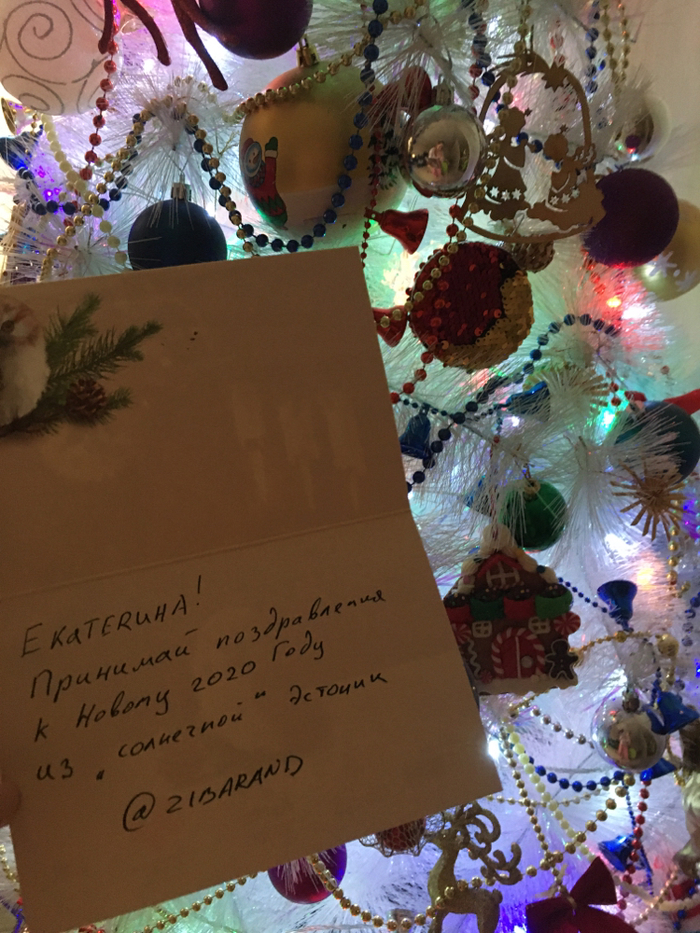 Екатерина!
Принимай поздравления
к Новому 2020 Году
из „солнечной" Эстонии
@ZIBARAND